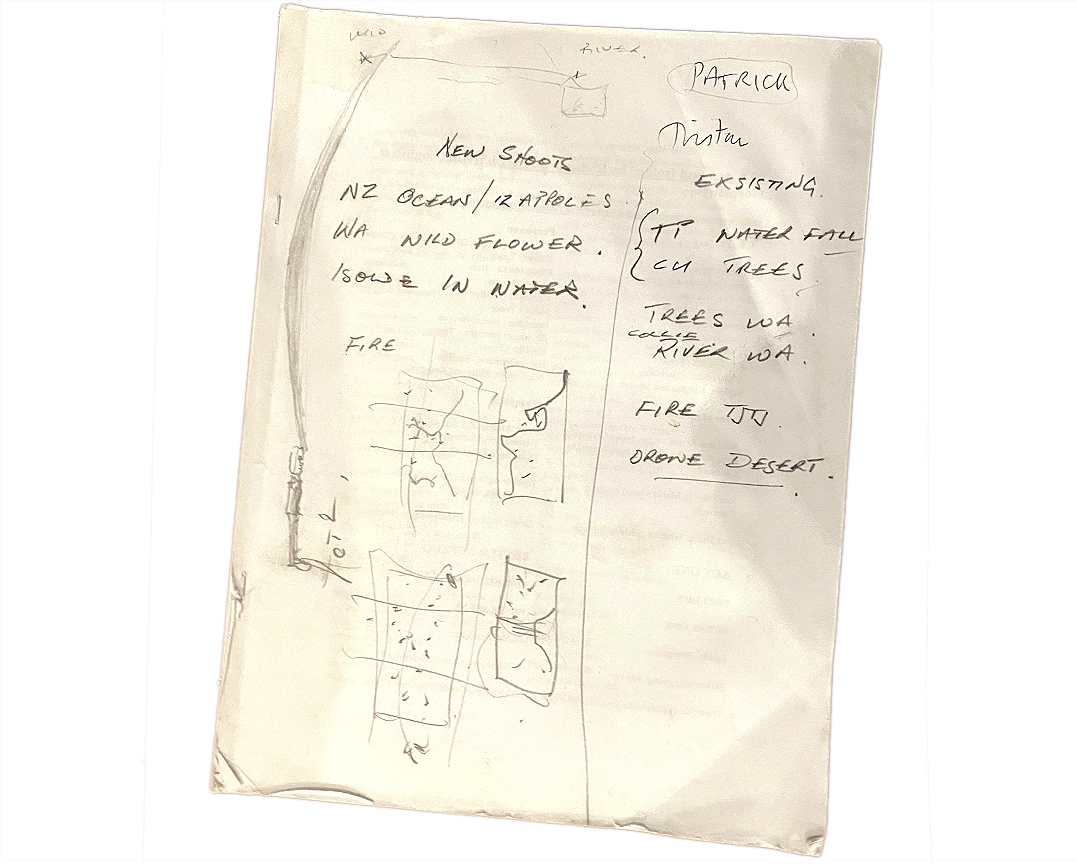 RIVER.
PATRICK
Tristan
NEW SHOOTS
NZ OCEAN / 12 APPOLES.
WA WILD FLOWER.
ISOLDE IN WATER.
FIRE
EKSISTING.
TP WATER FALL
CU TREES
TREES WA.
COLLIE
RIVER WA.
FIRE TJTJ.
DRONE DESERT.